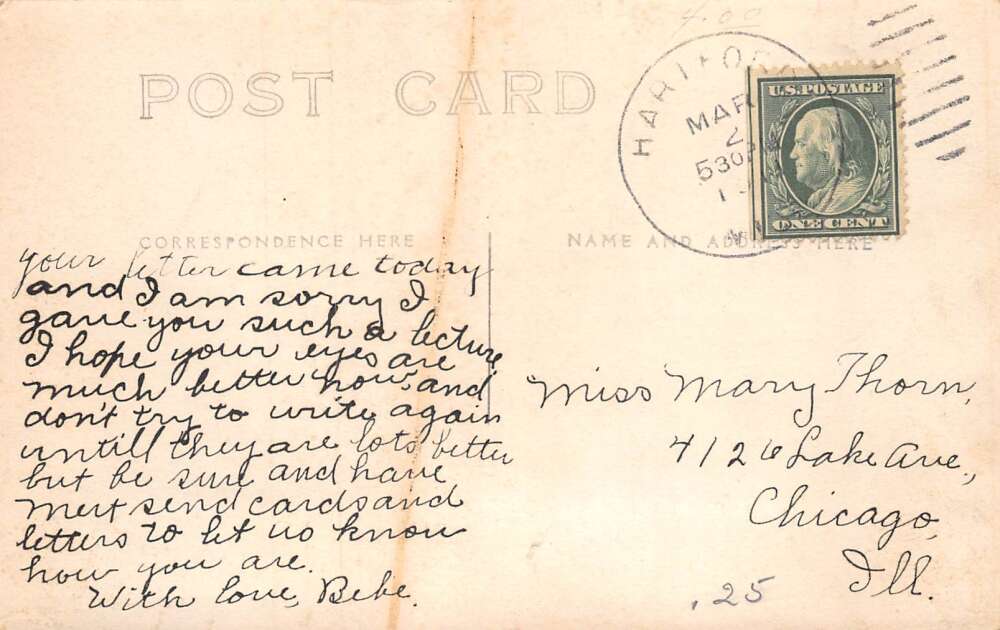 4.00
POST CARD
HARTFO
MAR
2
530P
U.S. POSTAGE
ONE CENT
CORRESPONDENCE HERE
NAME AND ADDRESS HERE
your letter came today
and I am sorry I
gave you such a lecture
I hope your eyes are
much better now, and
don't try to write again
untill they are lots better
but be sure and have
Mert send cards and
letters to let us know
how you are.
With love, Bebe.
Miss Mary Thorn,
4126 Lake Ave.,
Chicago,
Ill.
.25